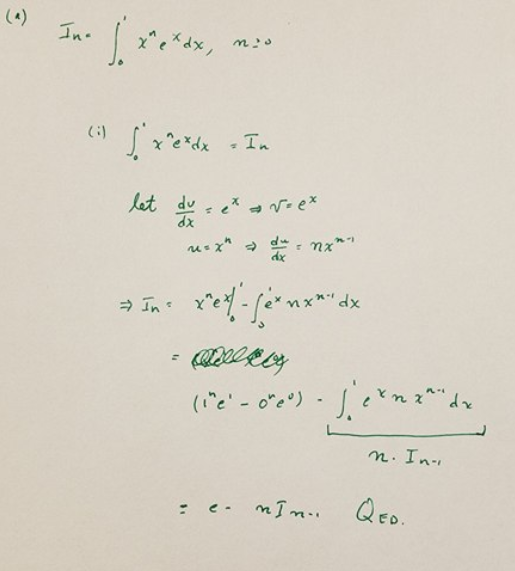 (a)
Iₙ = ∫₀¹ xⁿ eˣ dx, n ≥ 0
(i) ∫₀¹ xⁿ eˣ dx = Iₙ
let dv/dx = eˣ ⇒ v = eˣ
u = xⁿ ⇒ du/dx = nxⁿ⁻¹
⇒ Iₙ = xⁿ eˣ|₀¹ - ∫₀¹ eˣ n xⁿ⁻¹ dx
=
(1ⁿe¹ - 0ⁿe⁰) - ∫₀¹ eˣ n xⁿ⁻¹ dx
n · Iₙ₋₁
= e - n Iₙ₋₁ QED.